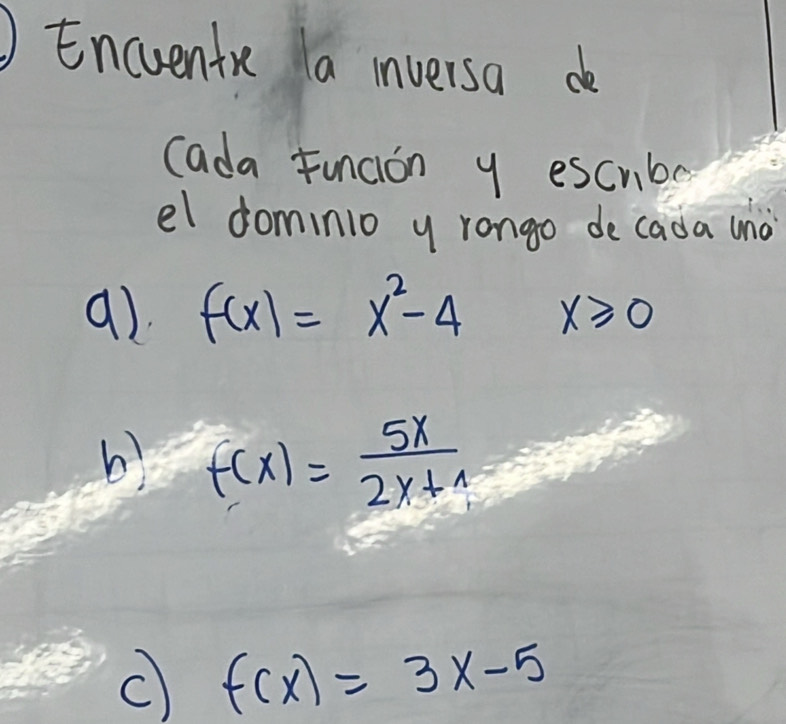 Encuentre la inversa de
cada función y escriba
el dominio y rango de cada una
a). f(x) = x² - 4 x ≥ 0
b) f(x) = 5x / 2x +
c) f(x) = 3x - 5